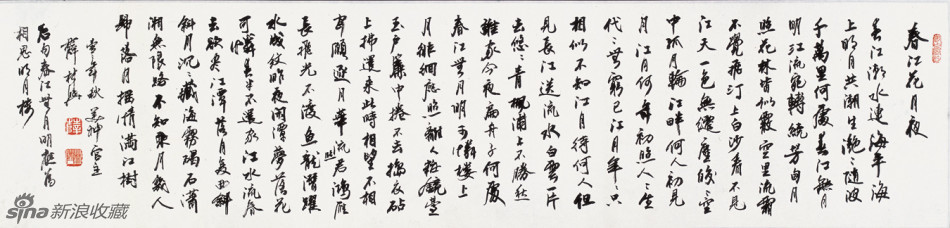 春江花月夜
春江潮水連海平海
上明月共潮生灩〻隨波
千萬里何處春江無月
明江流宛轉繞芳甸月
照花林皆似霰空里流霜
不覺飛汀上白沙看不見
江天一色無纖塵皎〻空
中孤月輪江畔何人初見
月江月何年初照人〻生
代〻無窮已江月年〻只
相似不知江月待何人但
見長江送流水白雲一片
去悠〻青楓浦上不勝愁
誰家今夜扁舟子何處
春江無月明可憐樓上
月徘徊應照離人妝鏡臺
玉戶簾中捲不去擣衣砧
上拂還來此時相望不相
聞願逐月華流照君鴻雁
長飛光不渡魚龍潛躍
水成紋昨夜閑潭夢落花
可憐春半不還家江水流春
去欲盡江潭落月復西斜
斜月沉〻藏海霧碣石瀟
湘無限路不知乘月幾人
歸落月搖情滿江樹
薛林興
后句春江無月明應為
相思明月樓
sina新浪收藏